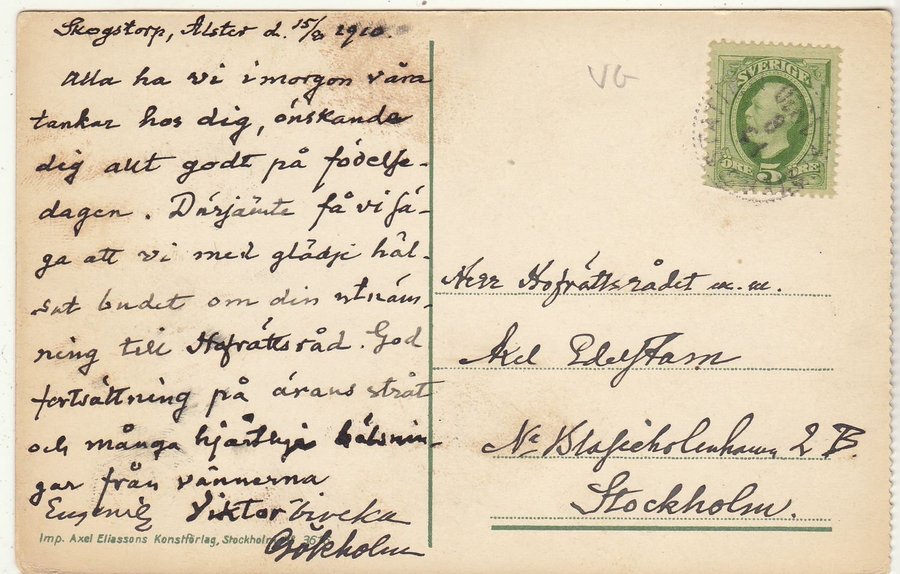 Skogstorp, Alster d. 15/8 1910.
Alla ha vi i morgon våra
tankar hos dig, önskande
dig allt godt på födelse-
dagen. Därjämte få vi sä-
ga att vi med glädje häl-
sat budet om din utnäm-
ning till Hofrättsråd. God
fortsättning på ärans stråt
och många hjärtliga hälsnin-
gar från vännerna
Eugenie Viktor Viveka
Gökholm
Imp. Axel Eliassons Konstförlag, Stockholm
VG
SVERIGE
ÖRE 5 ÖRE
Herr Hofrättsrådet m.m.
Axel Edelstam
Blasieholmshamn 2 B
Stockholm.